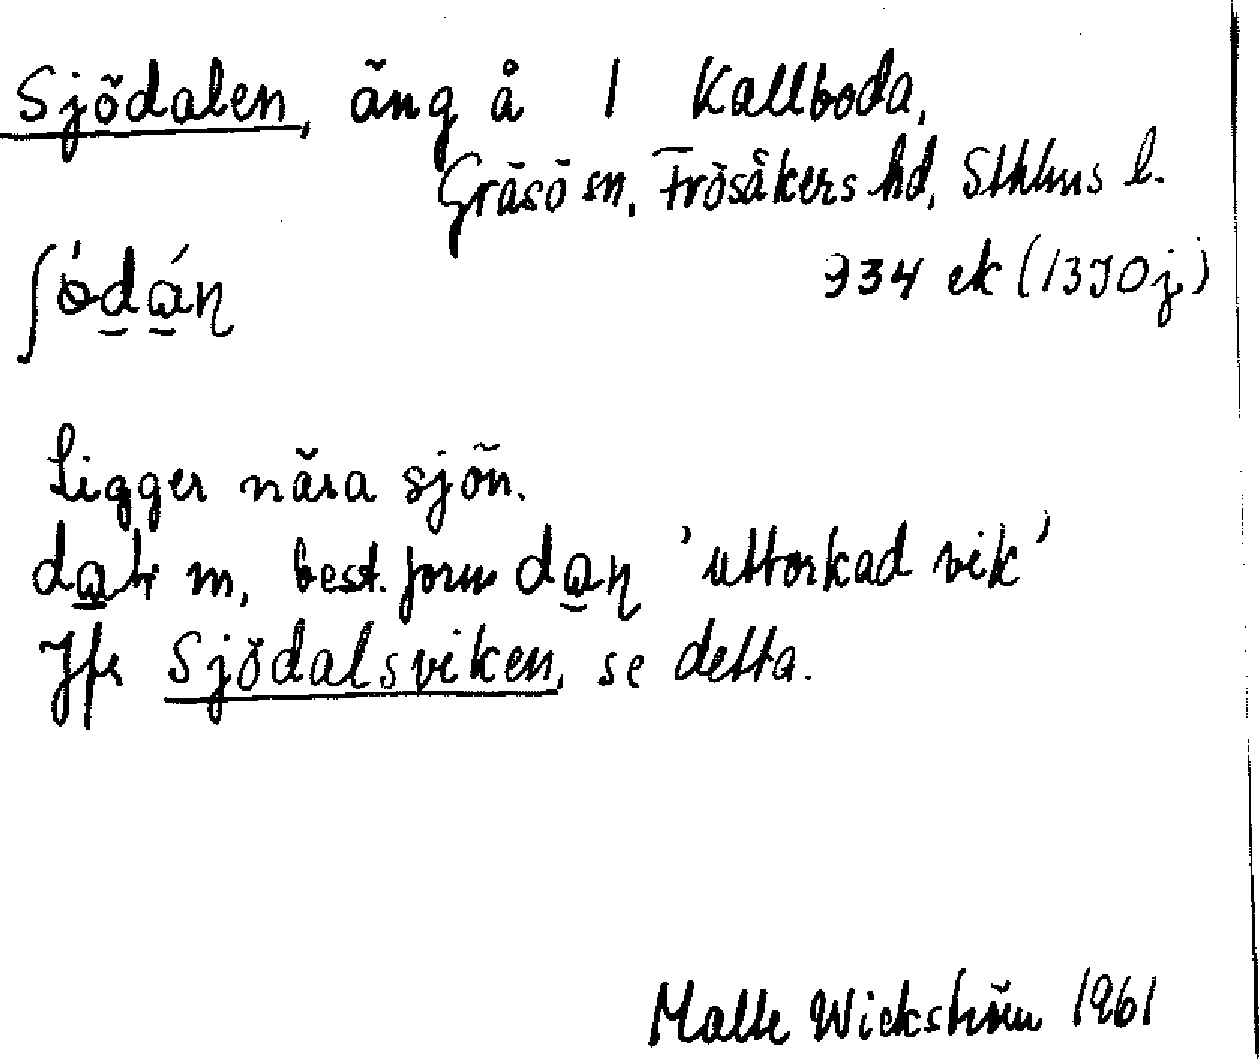 Sjödalen, äng å 1 Kallboda,
Gräsö sn, Frösåkers hd, Sthlms l.
934 ek (1370j)
Ligger nära sjön.
m, best. form 'uttorkad vik'
Jfr Sjödalsviken, se detta.
Malle Wickström 1961